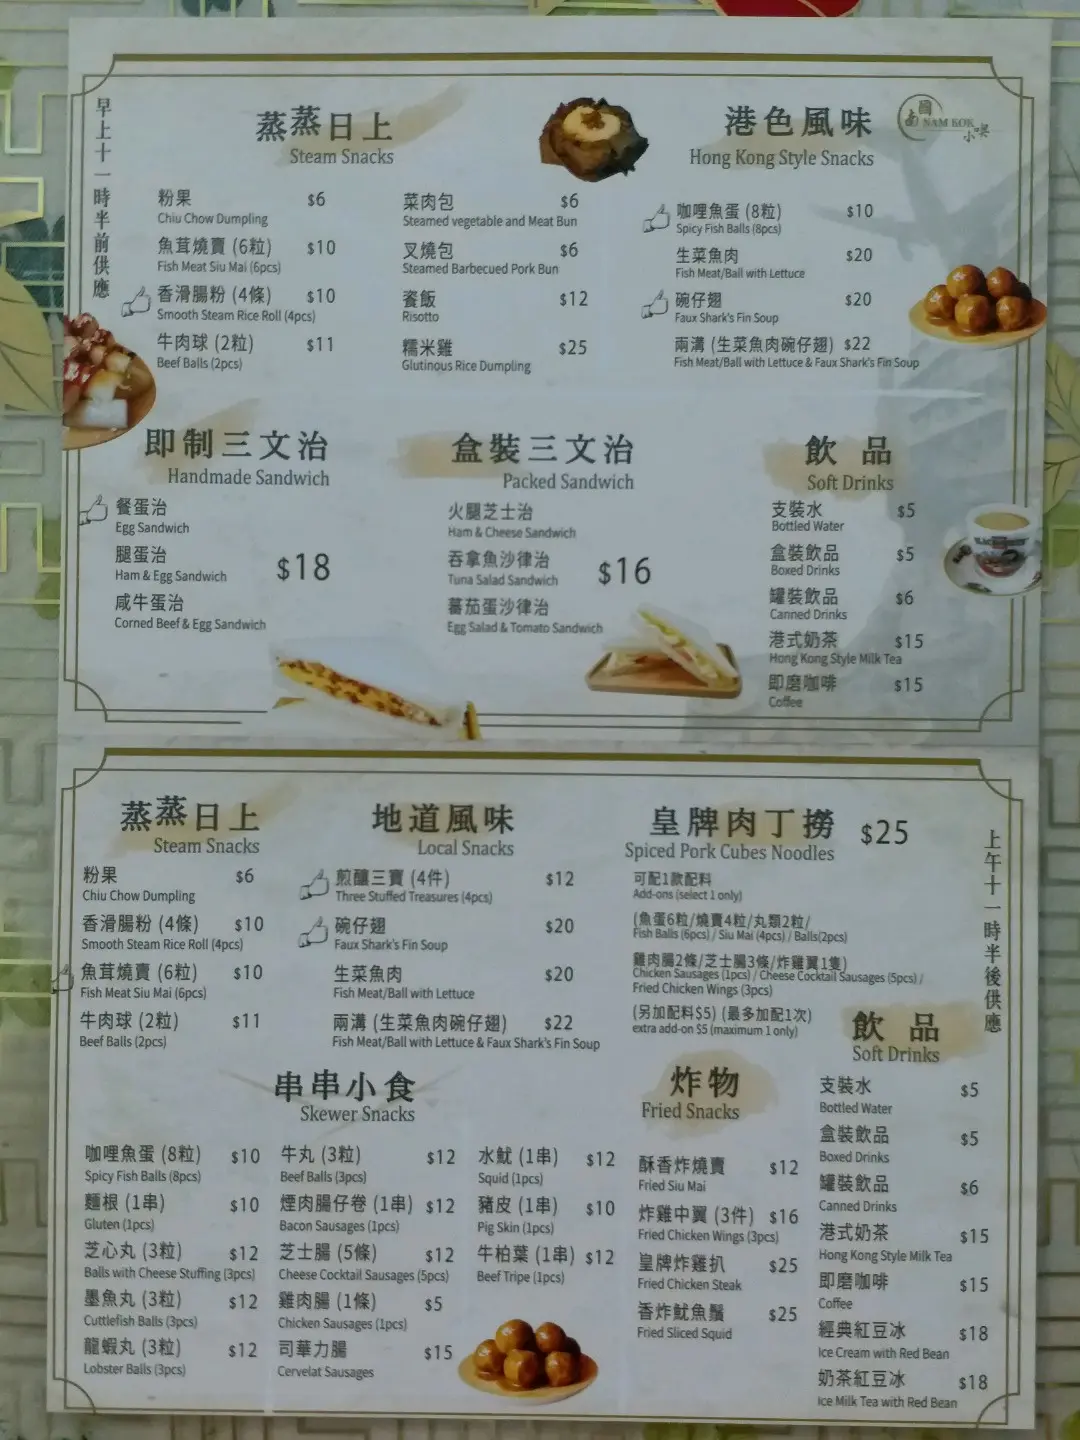 早上十一時半前供應
蒸蒸日上
Steam Snacks
粉果 $6
Chiu Chow Dumpling
魚茸燒賣 (6粒) $10
Fish Meat Siu Mai (6pcs)
香滑腸粉 (4條) $10
Smooth Steam Rice Roll (4pcs)
牛肉球 (2粒) $11
Beef Balls (2pcs)
菜肉包 $6
Steamed vegetable and Meat Bun
叉燒包 $6
Steamed Barbecued Pork Bun
瓷飯 $12
Risotto
糯米雞 $25
Glutinous Rice Dumpling
港色風味
Hong Kong Style Snacks
南國
NAM KOK
小喫
咖哩魚蛋 (8粒) $10
Spicy Fish Balls (8pcs)
生菜魚肉 $20
Fish Meat/Ball with Lettuce
碗仔翅 $20
Faux Shark's Fin Soup
兩溝 (生菜魚肉碗仔翅) $22
Fish Meat/Ball with Lettuce & Faux Shark's Fin Soup
即制三文治
Handmade Sandwich
餐蛋治
Egg Sandwich
腿蛋治
Ham & Egg Sandwich
咸牛蛋治
Corned Beef & Egg Sandwich
$18
盒裝三文治
Packed Sandwich
火腿芝士治
Ham & Cheese Sandwich
吞拿魚沙律治
Tuna Salad Sandwich
蕃茄蛋沙律治
Egg Salad & Tomato Sandwich
$16
飲品
Soft Drinks
支裝水 $5
Bottled Water
盒裝飲品 $5
Boxed Drinks
罐裝飲品 $6
Canned Drinks
港式奶茶 $15
Hong Kong Style Milk Tea
即磨咖啡 $15
Coffee
蒸蒸日上
Steam Snacks
粉果 $6
Chiu Chow Dumpling
香滑腸粉 (4條) $10
Smooth Steam Rice Roll (4pcs)
魚茸燒賣 (6粒) $10
Fish Meat Siu Mai (6pcs)
牛肉球 (2粒) $11
Beef Balls (2pcs)
地道風味
Local Snacks
煎釀三寶 (4件) $12
Three Stuffed Treasures (4pcs)
碗仔翅 $20
Faux Shark's Fin Soup
生菜魚肉 $20
Fish Meat/Ball with Lettuce
兩溝 (生菜魚肉碗仔翅) $22
Fish Meat/Ball with Lettuce & Faux Shark's Fin Soup
皇牌肉丁撈 $25
Spiced Pork Cubes Noodles
可配1款配料
Add-ons (select 1 only)
(魚蛋6粒/燒賣4粒/丸類2粒/
Fish Balls (6pcs) / Siu Mai (4pcs) / Balls(2pcs)
雞肉腸2條/芝士腸3條/炸雞翼1隻)
Chicken Sausages (1pcs) / Cheese Cocktail Sausages (5pcs) /
Fried Chicken Wings (3pcs)
(另加配料$5) (最多加配1次)
extra add-on $5 (maximum 1 only)
上午十一時半後供應
串串小食
Skewer Snacks
咖哩魚蛋 (8粒) $10
Spicy Fish Balls (8pcs)
麵根 (1串) $10
Gluten (1pcs)
芝心丸 (3粒) $12
Balls with Cheese Stuffing (3pcs)
墨魚丸 (3粒) $12
Cuttlefish Balls (3pcs)
龍蝦丸 (3粒) $12
Lobster Balls (3pcs)
牛丸 (3粒) $12
Beef Balls (3pcs)
煙肉腸仔卷 (1串) $12
Bacon Sausages (1pcs)
芝士腸 (5條) $12
Cheese Cocktail Sausages (5pcs)
雞肉腸 (1條) $5
Chicken Sausages (1pcs)
司華力腸 $15
Cervelat Sausages
水魷 (1串) $12
Squid (1pcs)
豬皮 (1串) $10
Pig Skin (1pcs)
牛柏葉 (1串) $12
Beef Tripe (1pcs)
炸物
Fried Snacks
酥香炸燒賣 $12
Fried Siu Mai
炸雞中翼 (3件) $16
Fried Chicken Wings (3pcs)
皇牌炸雞扒 $25
Fried Chicken Steak
香炸魷魚鬚 $25
Fried Sliced Squid
飲品
Soft Drinks
支裝水 $5
Bottled Water
盒裝飲品 $5
Boxed Drinks
罐裝飲品 $6
Canned Drinks
港式奶茶 $15
Hong Kong Style Milk Tea
即磨咖啡 $15
Coffee
經典紅豆冰 $18
Ice Cream with Red Bean
奶茶紅豆冰 $18
Ice Milk Tea with Red Bean